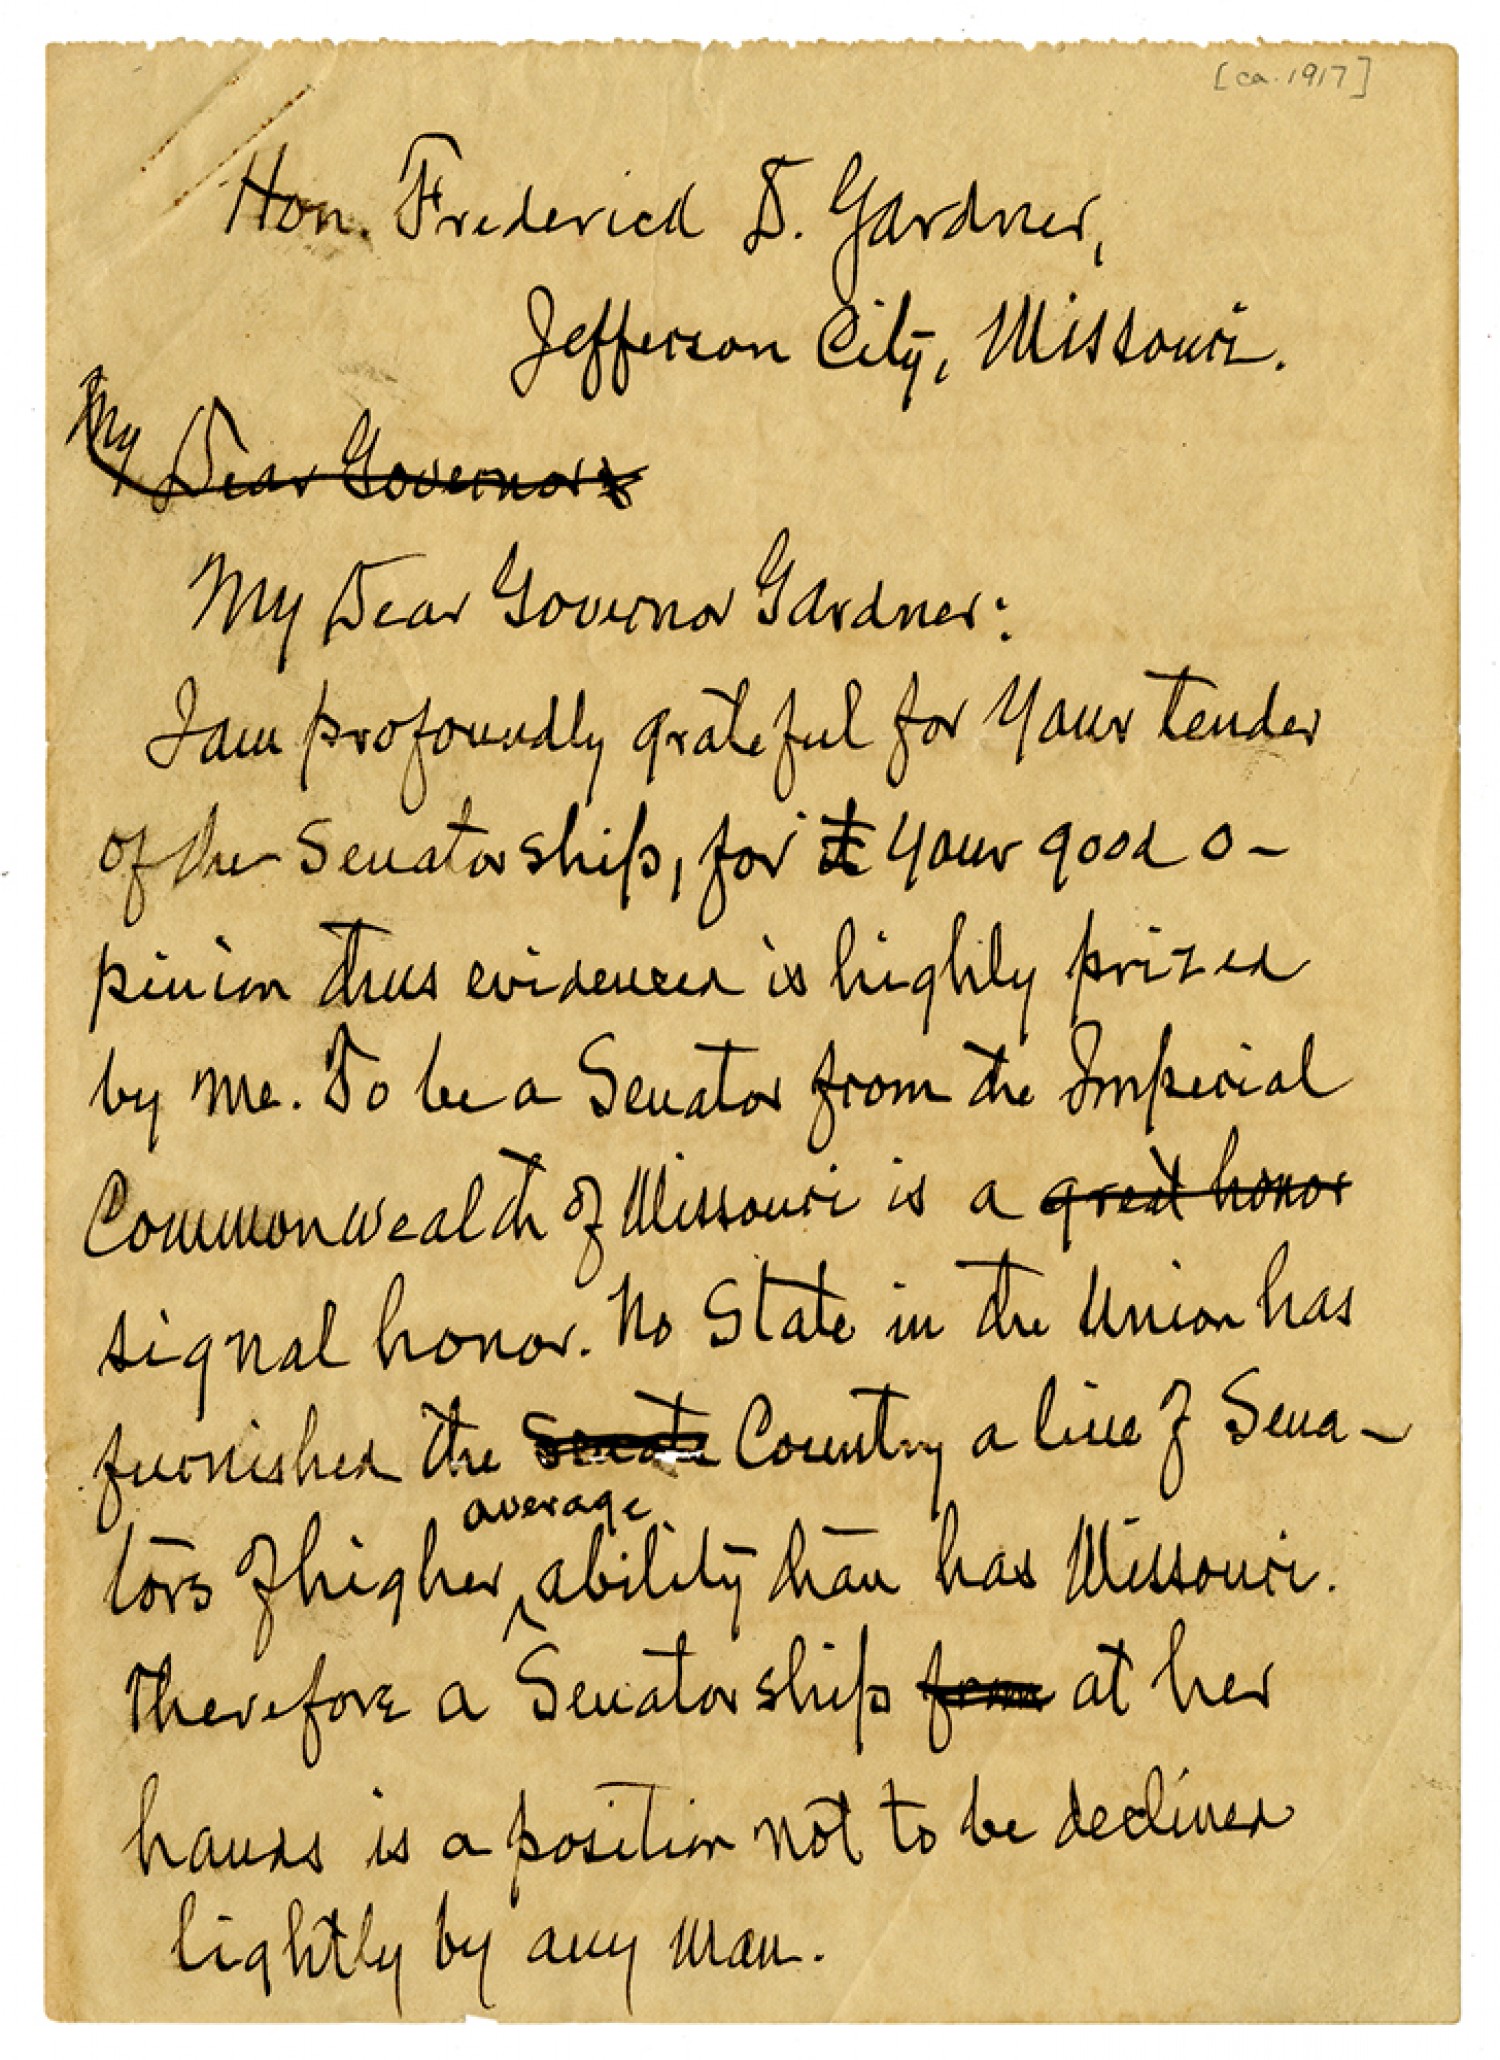 [ca. 1917]
Hon. Frederick D. Gardner,
Jefferson City, Missouri.
My Dear Governor:
My Dear Governor Gardner:
I am profoundly grateful for your tender
of the Senatorship, for it your good o-
pinion thus evidenced is highly prized
by me. To be a Senator from the Imperial
Commonwealth of Missouri is a great honor
signal honor. No State in the Union has
furnished the Senate Country a line of Sena-
average
tors of higher ability than has Missouri.
Therefore a Senatorship from at her
hands is a position not to be declined
lightly by any man.